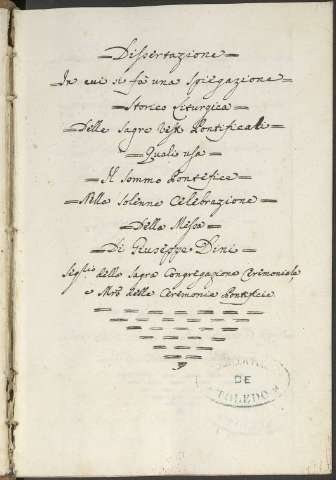 Dissertazione
In cui si fà una Spiegazione
Storico Liturgica
Delle Sagre Vesti Pontificali
Quali usa
Il Sommo Pontefice
Nella Solenne Celebrazione
Della Messa
Di Giuseppe Dini
della Sagra Congregazione Ceremoniale
e Mro delle Ceremonie Pontificie
DE
TOLEDO